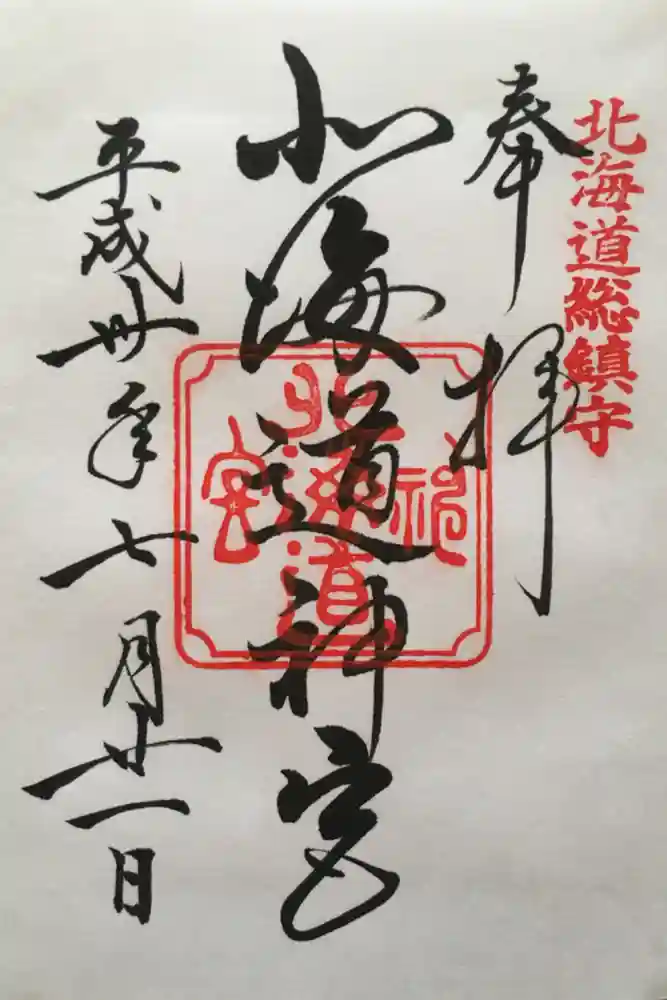 北海道総鎮守
奉拝
北海道神宮
北海道神宮
平成卅年七月廿一日